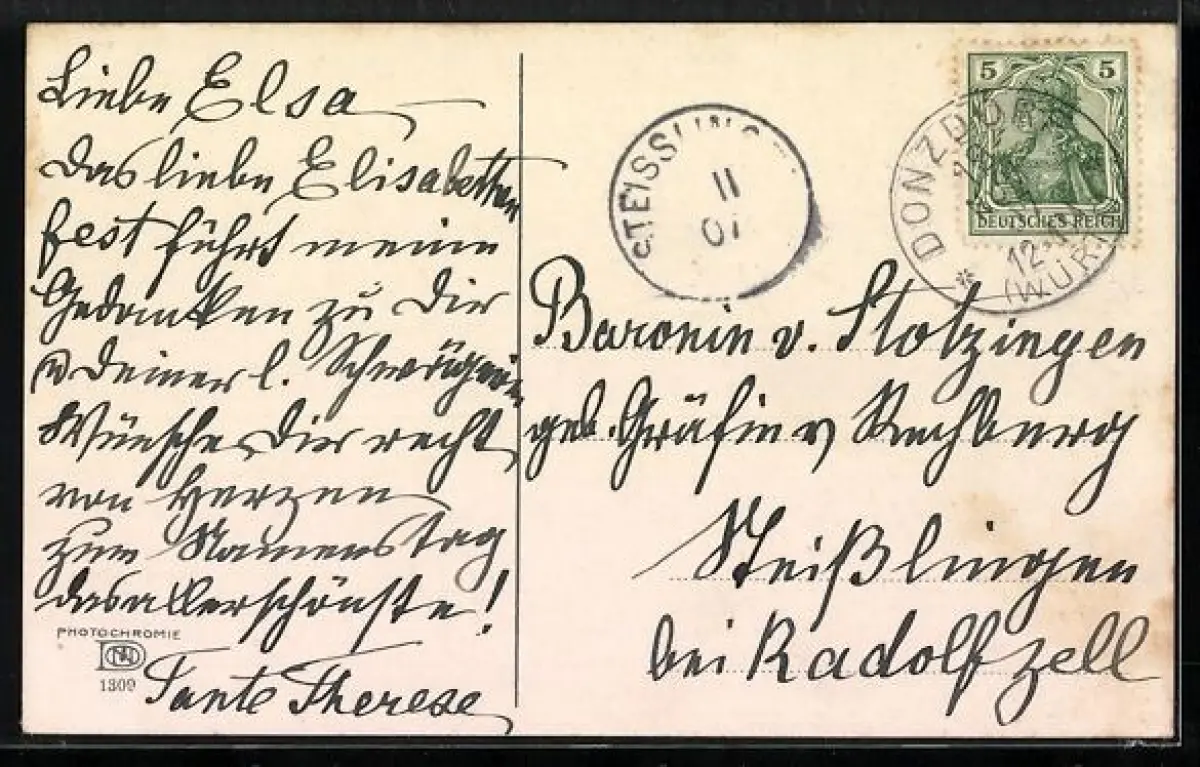 Liebe Elsa
Das liebe Elisabethen
fest führt meine
Gedanken zu Dir
u Deiner l. Schwägerin
Wünsche Dir recht
von Herzen
zum Namenstag
das allerschönste!
Tante Therese
PHOTOCHROMIE
1309
STEISSLINGEN
11
01
5 5
DEUTSCHES REICH
* DONZDORF
12-1
(WÜRT
Baronin v. Stotzingen
geb. Gräfin v Rechberg
Steißlingen
bei Radolfzell